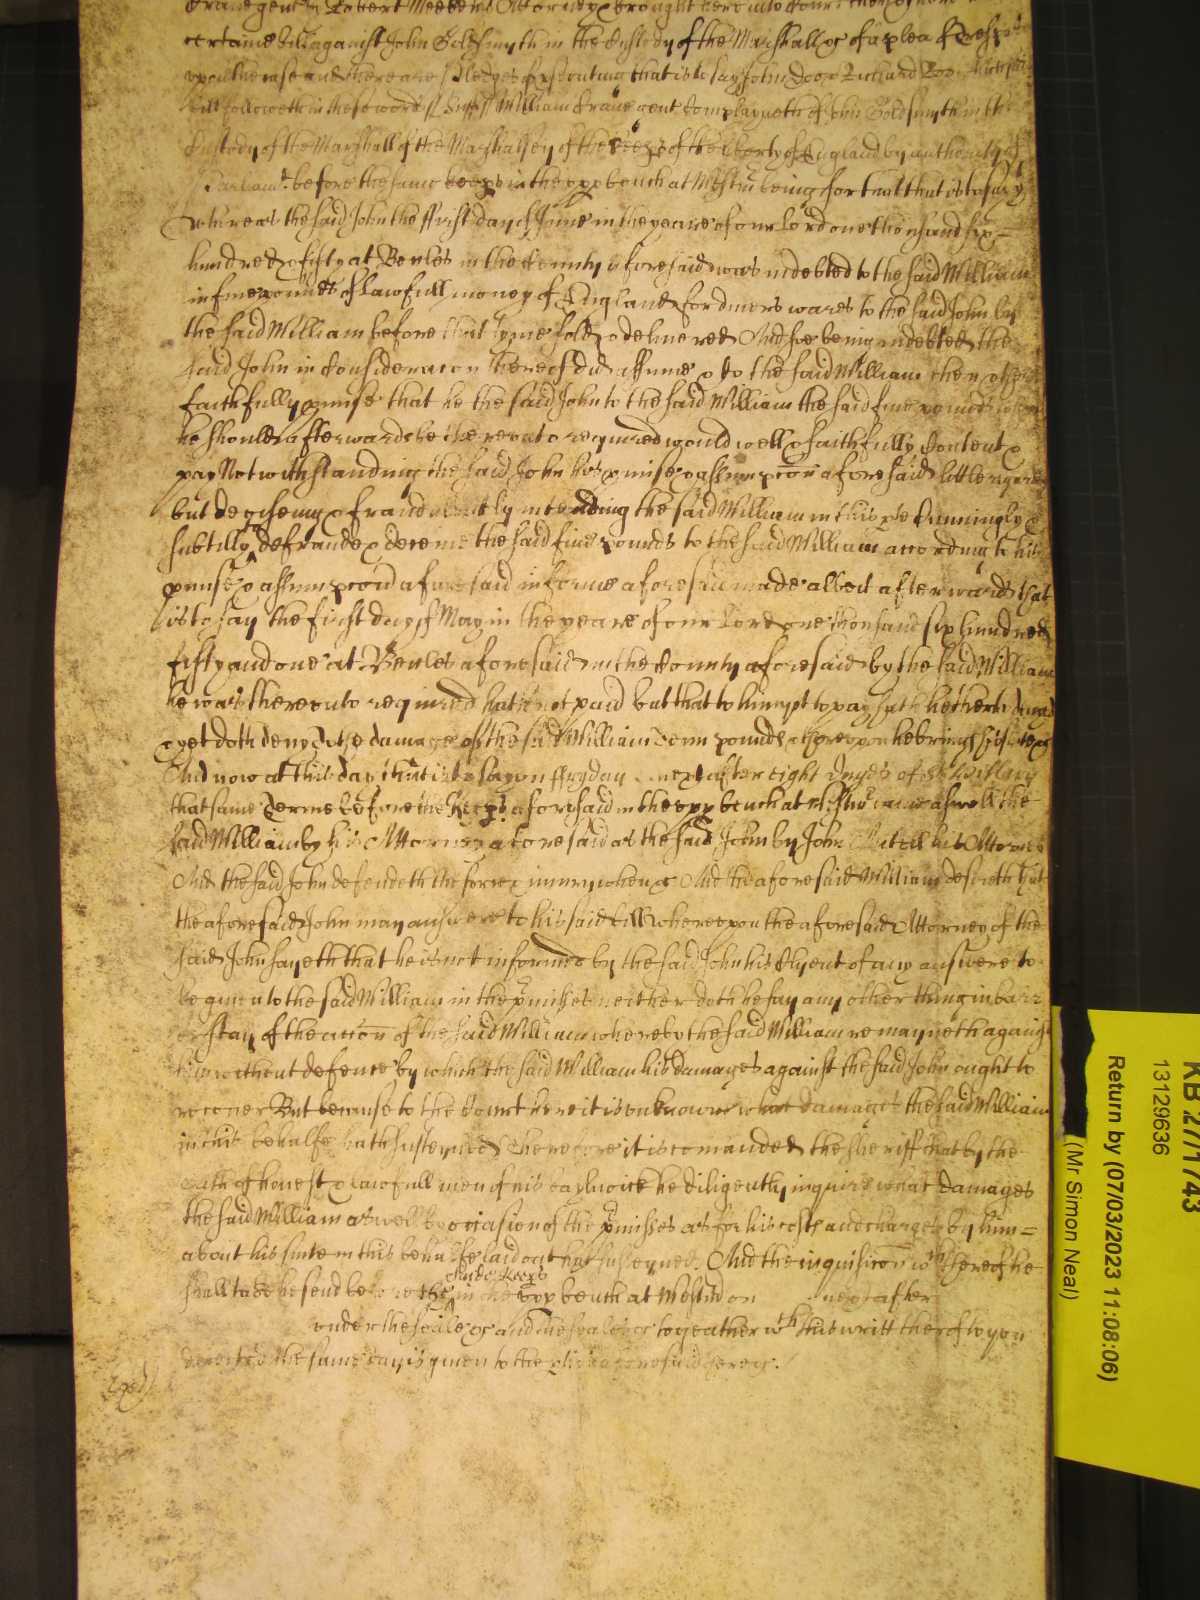 gent by Robert Meeke his Attorney & brought here into Court then & there
certaine bill against John Goldsmyth in the Custody of the Marshall &c of a plea of Tresps
upon the case and there are Pledges of psecuting that is to say John Doo & Richard Roo which said
bill followeth in these words ss William gent Complayneth of John Goldsmyth in the
Custody of the Marshall of the Marshalsey of the Keeps of the liberty of England by authority of
Parliamt before the same Keeps in the upp bench at Westm being for that that is to say
whereas the said John the ffirst day of June in the yeare of our Lord one thousand six=
hundred & fifty at Beccles in the County aforesaid was indebted to the said William
in five pounds of lawfull money of England for divers wares to the said John by
the said William before that tyme sold & delivered And soe being indebted the
said John in Consideracon thereof did assume & to the said William then & there
faithfully pmise that he the said John to the said William the said five pounds when
he should afterwards be thereunto required would well & faithfully Content &
pay Notwithstanding the said John his pmise & assumpcon aforesaid little regard
but deviseing & fraudulently intending the said William in this pte Cunningly &
subtilly defraude & deceive the said five pounds to the said William according to his
pmise & assumpcon aforesaid in forme aforesaid made albeit afterwards that
is to say the first day of May in the yeare of our Lord one thousand six hundred
fifty and one at Beccles aforesaid in the County aforesaid by the said William
he was thereunto required hath not paid but that to him yet to pay hath hetherto denyed
& yet doth deny To the damage of the said William Tenn pounds & thereupon he brings his sute &c
And now at this day that is to say on ffryday next after eight dayes of St Hillary
that same Terme before the Keeps aforesaid in the upp bench at Westm came aswell the
said William by his Attorney aforesaid as the said John by John his Attorney
And the said John defendeth the force & iniury when &c And the aforesaid William desireth that
the aforesaid John may answere to his said bill whereupon the aforesaid Attorney of the
said John sayeth that he is not informed by the said John his Clyent of any answere to
be given to the said William in the pmisses neither doth he say any other thing in barr
or stay of the accon of the said William whereby the said William remayneth against
him without defence by which the said William his damages against the said John ought to
recover But because to the Court here it is unknowne what damages the said William
in this behalfe hath susteyned Therefore it is comanded the Sheriff that by the
oath of honest & lawfull men of his baylwicke he diligently inquire what damages
the said William aswell by occasion of the pmisses as for his costs and charges by him=
about his sute in this behalfe laid out hath susteyned And the inquisicon wch thereof he
shall take he send before the said Keeps in the upp bench at Westm on next after
under the seale &c and the seales &c togeather wth this writt therof to you
directed the same day is given to the pties aforesaid there &c.
KB 27/1743
13129636
Return by (07/03/2023 11:08:06)
(Mr Simon Neal)